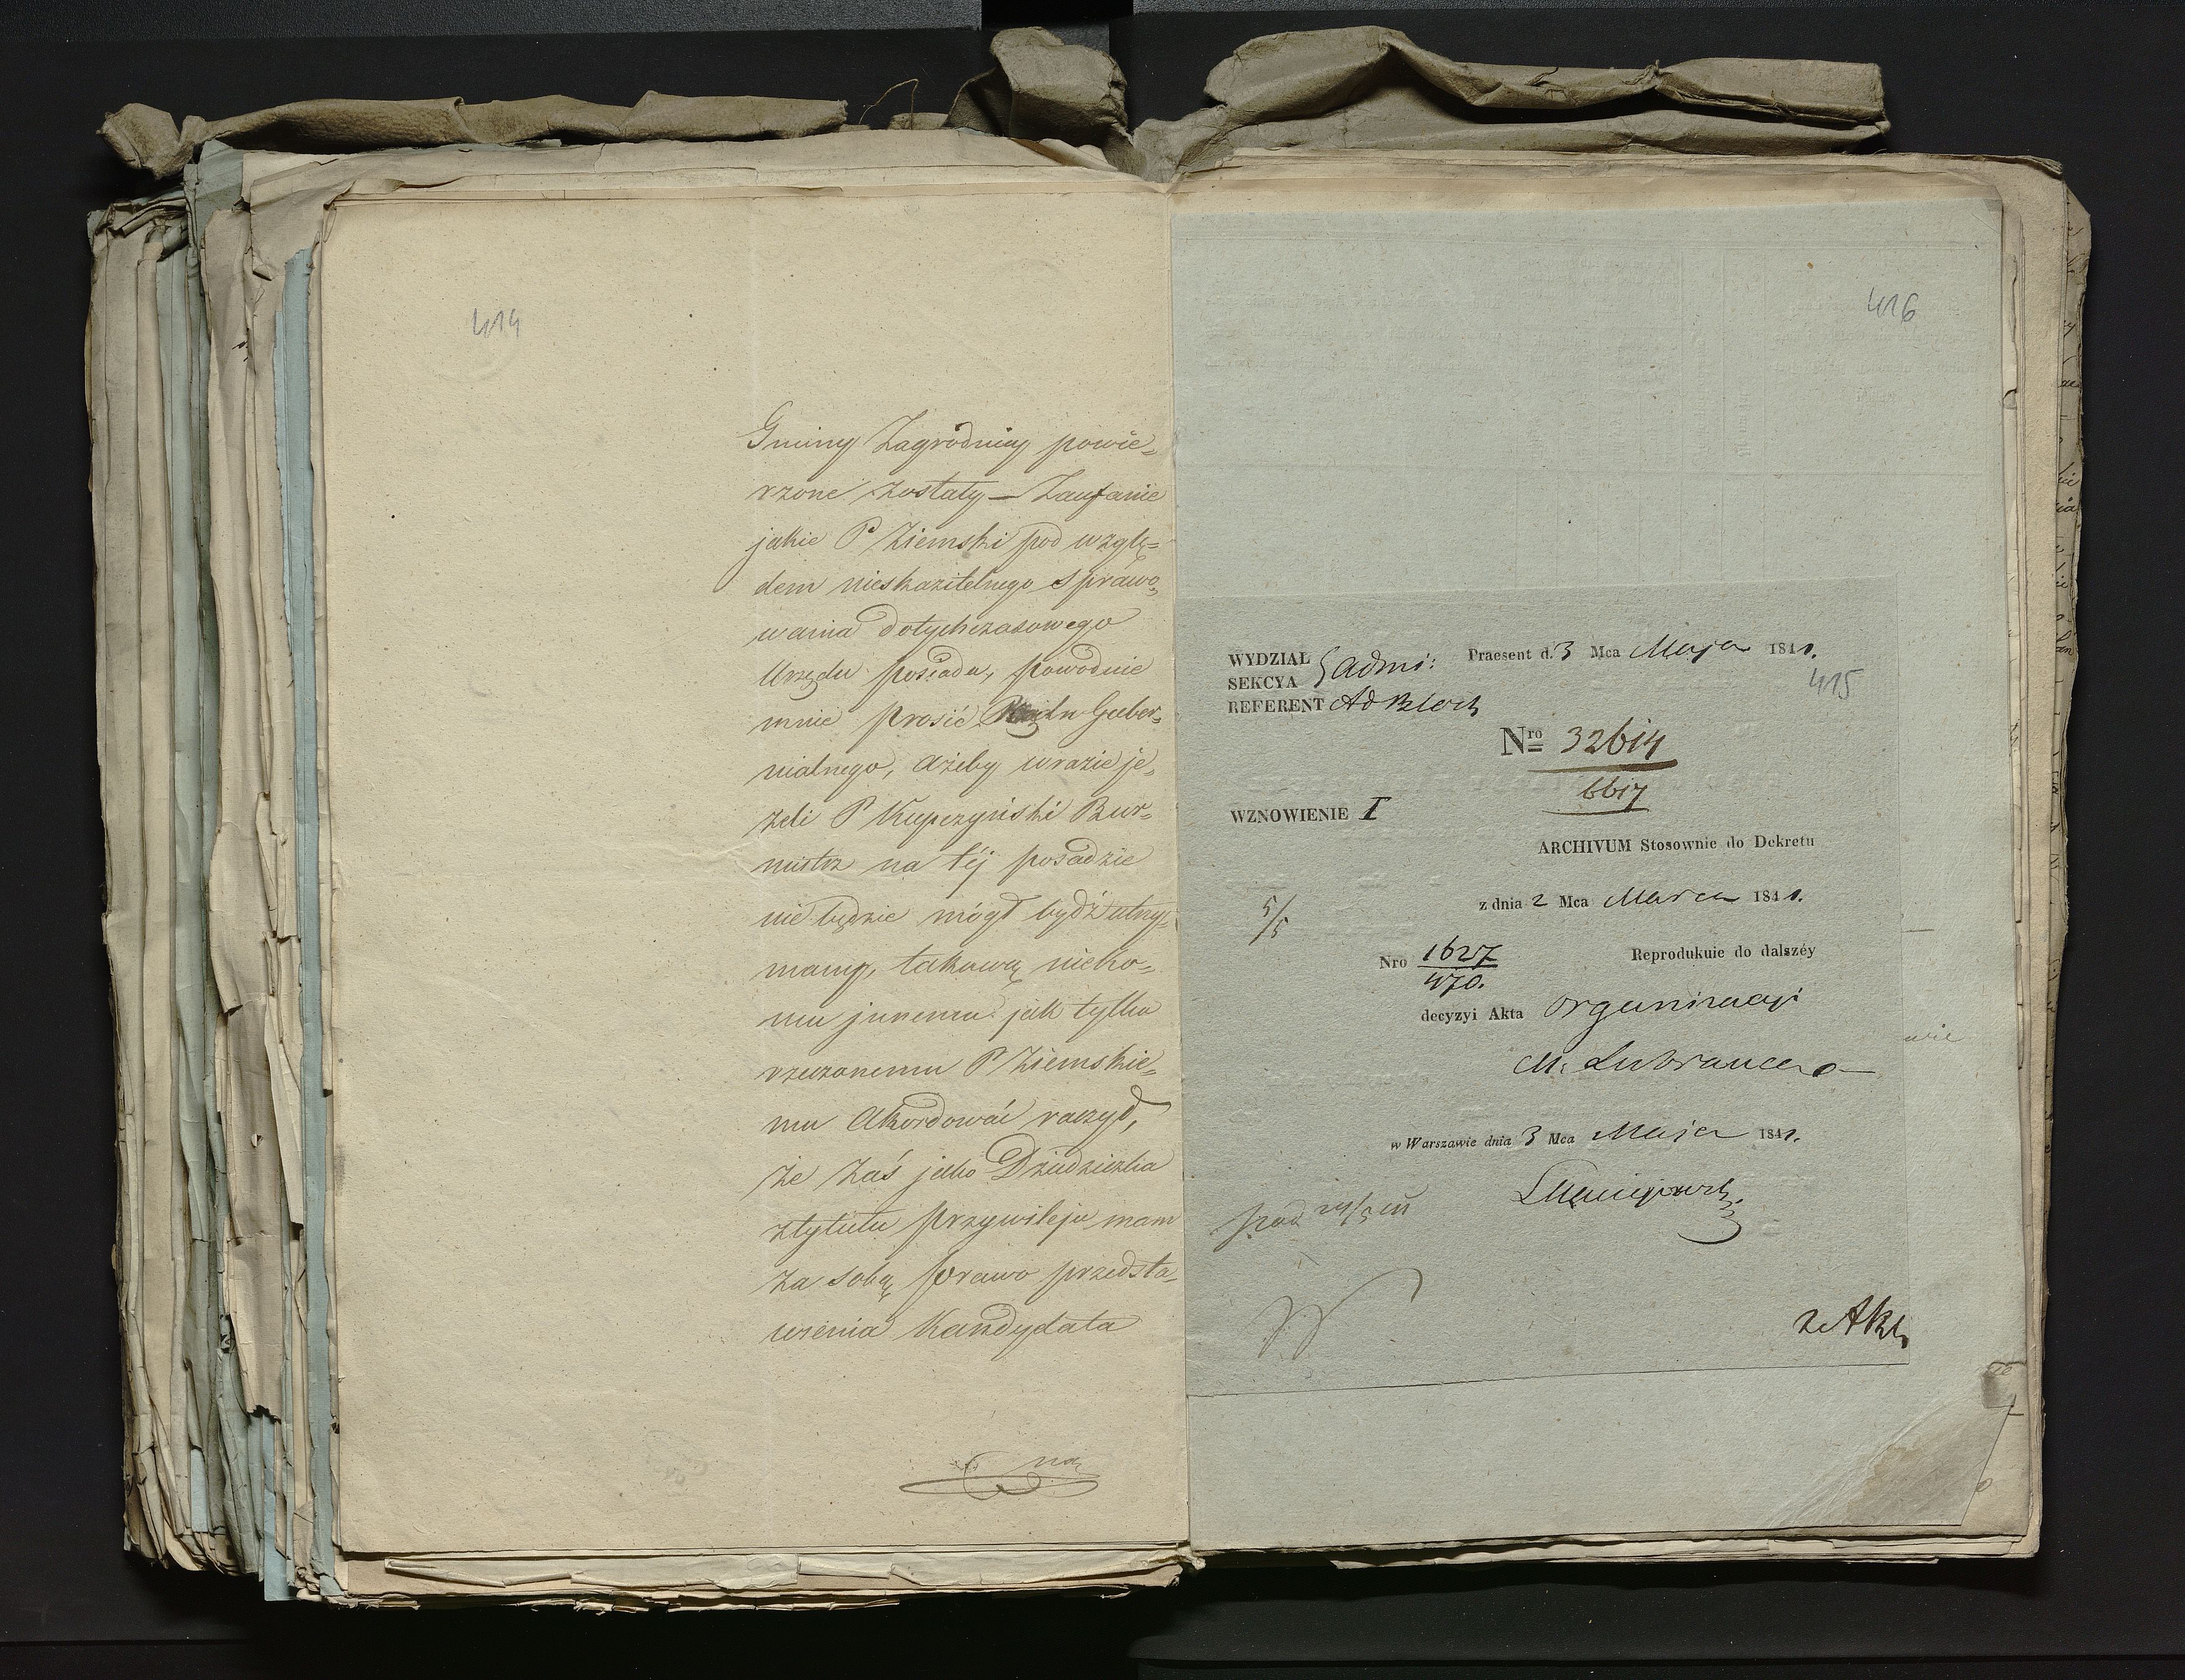 414
Gminy Zagrodnicy powie=
rzone zostały — Zaufanie
jakie P Ziemski pod wzglę=
dem nieskazitelnego sprawo=
wania dotychczasowego
Urzędu posiada, powodnie
mnie prosić Rządu Guber=
nialnego, ażeby wrazie je=
żeli P Kupczyński Bur=
mistrz na téj posadzie
nie będzie mógł bydź utrzy=
many, takową niko=
mu jnnemu jak tylko
rzeczonemu P Ziemskie=
mu akordować raczył,
że zaś jako Dziedziczka
ztytułu przywileju mam
za sobą prawo przedsta=
wienia Kandydata
na
416
WYDZIAŁ Praesent d. 3 Mca Maja 1841.
SEKCYA Admi:
415
REFERENT
Nro 32614
6617
WZNOWIENIE I
ARCHIVUM Stosownie do Dekretu
5/5
z dnia 2 Mca Marca 1841.
Nro 1627 Reprodukuie do dalszéy
470.
decyzyi Akta Organizacyi
M. Lubrancea
wie
w Warszawie dnia 3 Mca Maja 1841.
z Akt